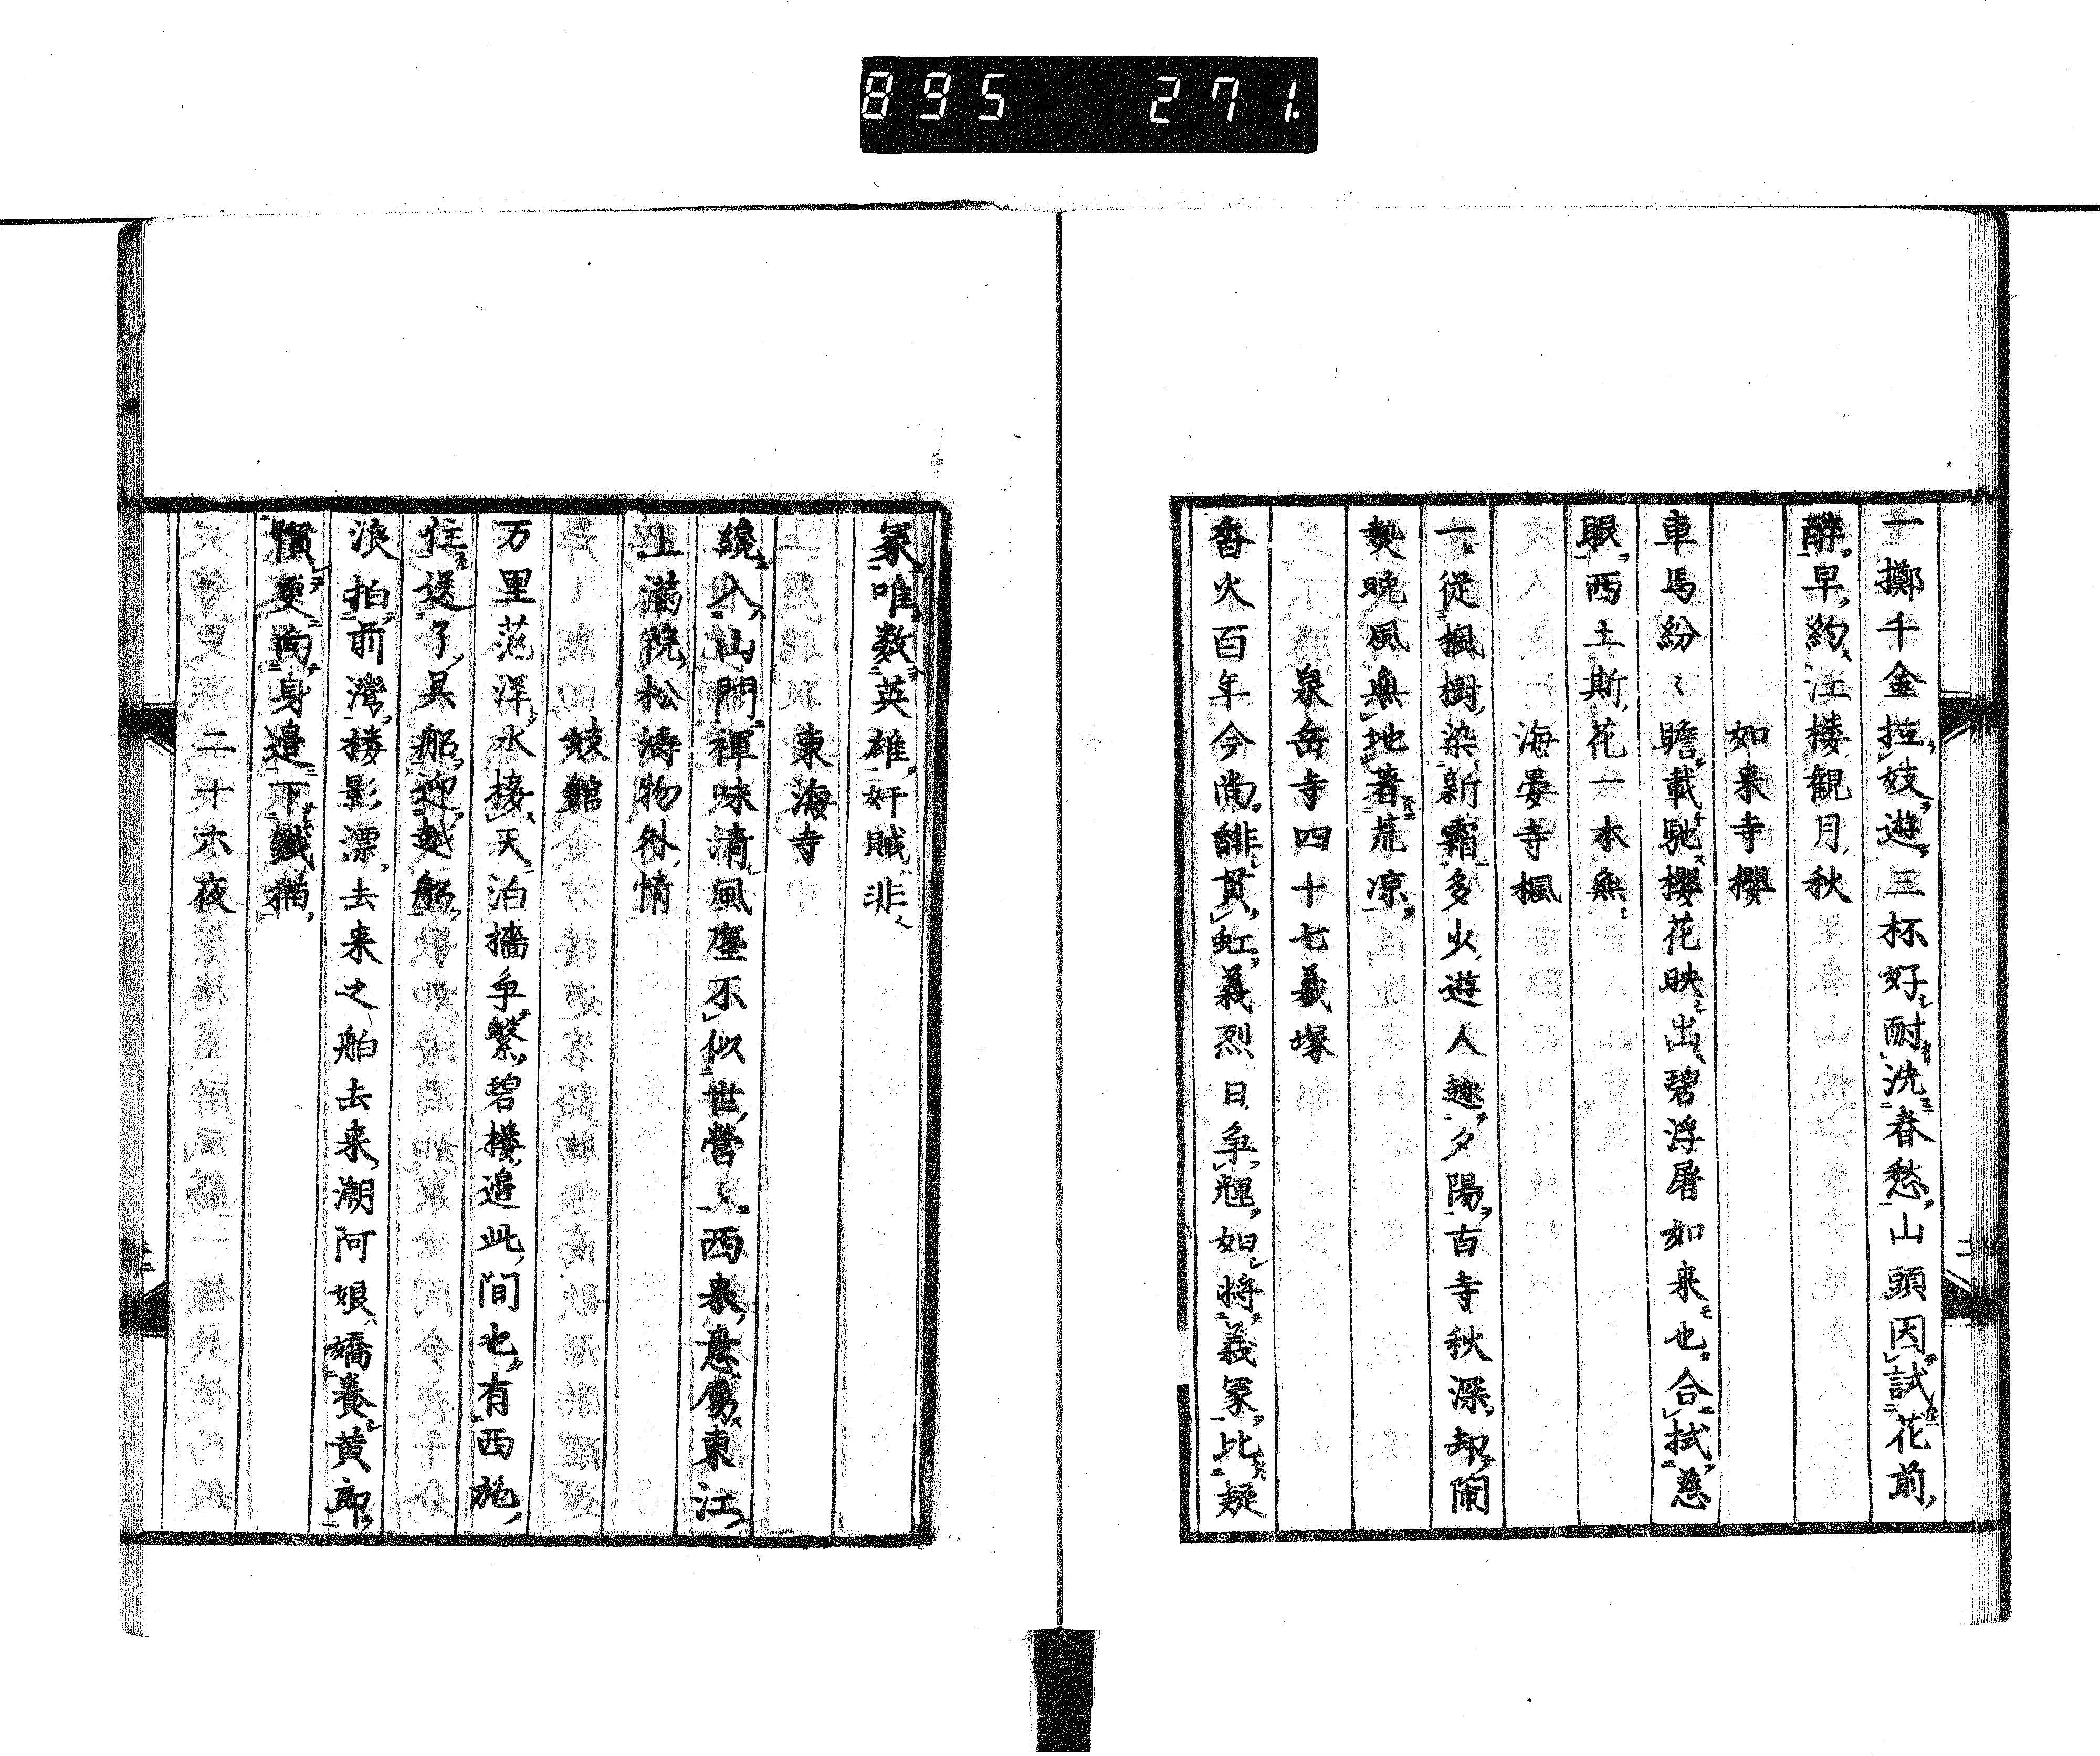 895 271.
一擲千金拉妓遊三杯好耐洗春愁山頭因試花前
酔早約江楼観月秋
如来寺櫻
車馬紛〻瞻載馳櫻花映出碧浮屠如来也合拭慈
眼西土斯花一木無
海晏寺楓
一従楓樹染新霜多少遊人趂夕陽古寺秋深却鬧
熱晩風無地著荒凉
泉岳寺四十七義塚
香火百年今尚馡貫虹義烈日争輝如将義冢比疑
冢唯数英雄奸賊非
東海寺
纔入山門禅味清風塵不似世営〻西来意属東江
上満院松濤物外情
妓館
万里茫洋水接天泊檣争繋碧楼邉此間也有西施
住送了呉船迎越船
浪拍前湾楼影漂去来之舶去来潮阿娘嬌養黄郎
慣更向身邉下鐵猫
二十六夜